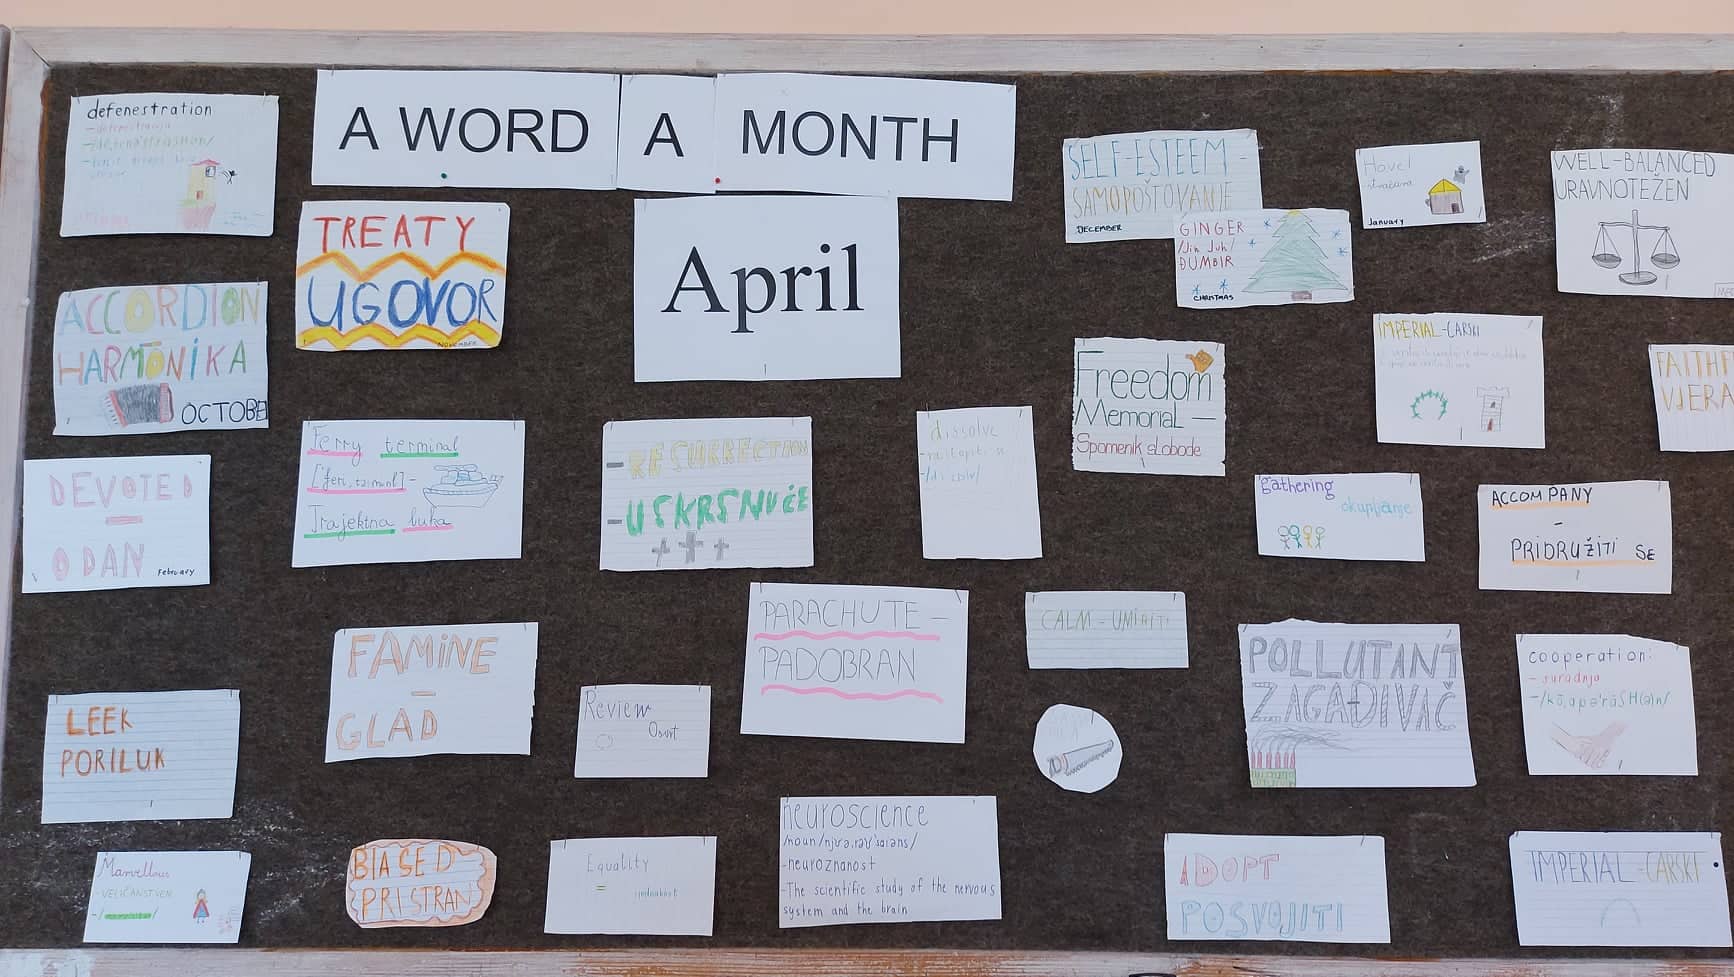 A WORD A MONTH
April
defenestration
TREATY
UGOVOR
NOVEMBER
ACCORDION
HARMONIKA
OCTOBE
DEVOTED
-
ODAN
February
Ferry terminal
Trajektna luka
-RESURRECTION
-USKRSNUĆE
dissolve
SELF-ESTEEM -
SAMOPOŠTOVANJE
DECEMBER
GINGER
/Jin Juh/
ĐUMBIR
CHRISTMAS
Hovel
straćara
January
WELL-BALANCED
URAVNOTEŽEN
Freedom
Memorial -
Spomenik slobode
IMPERIAL-CARSKI
FAITHF
VJERA
gathering
okupljanje
ACCOMPANY
-
PRIDRUŽITI SE
FAMINE
-
GLAD
PARACHUTE -
PADOBRAN
CALM - UMIRITI
POLLUTANT
ZAGAĐIVAČ
cooperation:
- suradnja
LEEK
PORILUK
Review
Osvrt
Marvellous
-VELIČANSTVEN
BIASED
PRISTRAN
Equality
=
jednakost
neuroscience
-neuroznanost
-The scientific study of the nervous
system and the brain
ADOPT
POSVOJITI
IMPERIAL-CARSKI